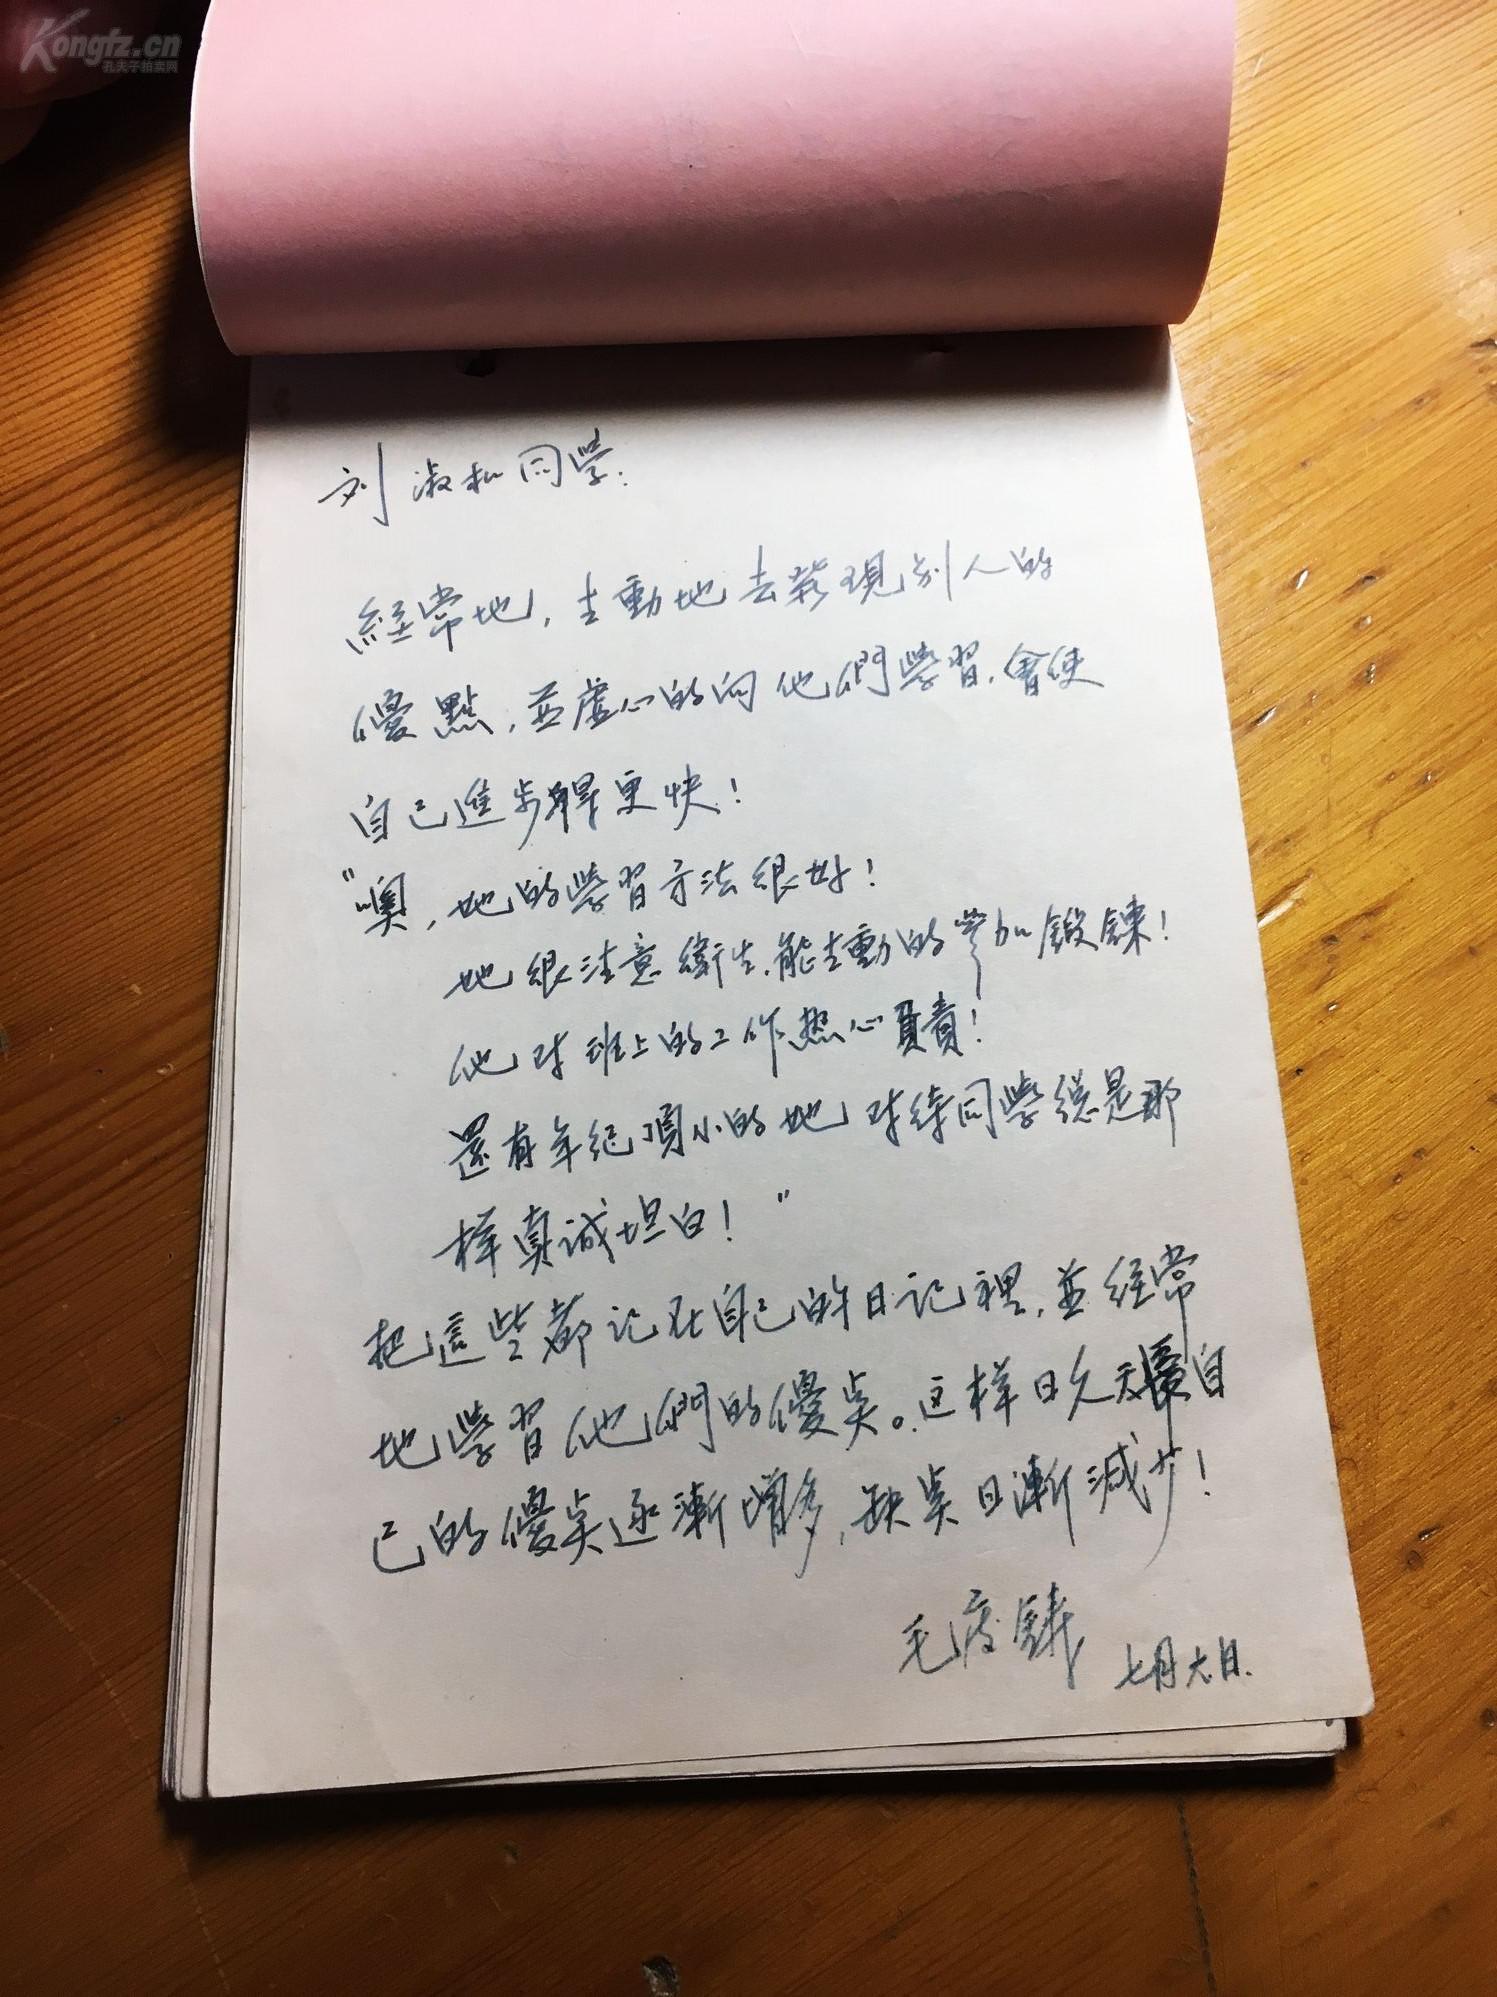 Kongfz.cn
孔夫子拍卖网
刘淑和同學:
經常地，主動地去發現别人的
優點，並虚心的向他們學習，會使
自己進步得更快！
"噢，她的學習方法很好！
她很注意衛生，能主動的參加鍛鍊！
他对班上的工作热心負責！
還有年纪頂小的她对待同學總是那
樣真誠坦白！"
把這些都记在自己的日记裡，並經常
地學習他們的優点。这样日久天長自
己的優点逐漸增多，缺点日漸減少！
毛
七月六日.